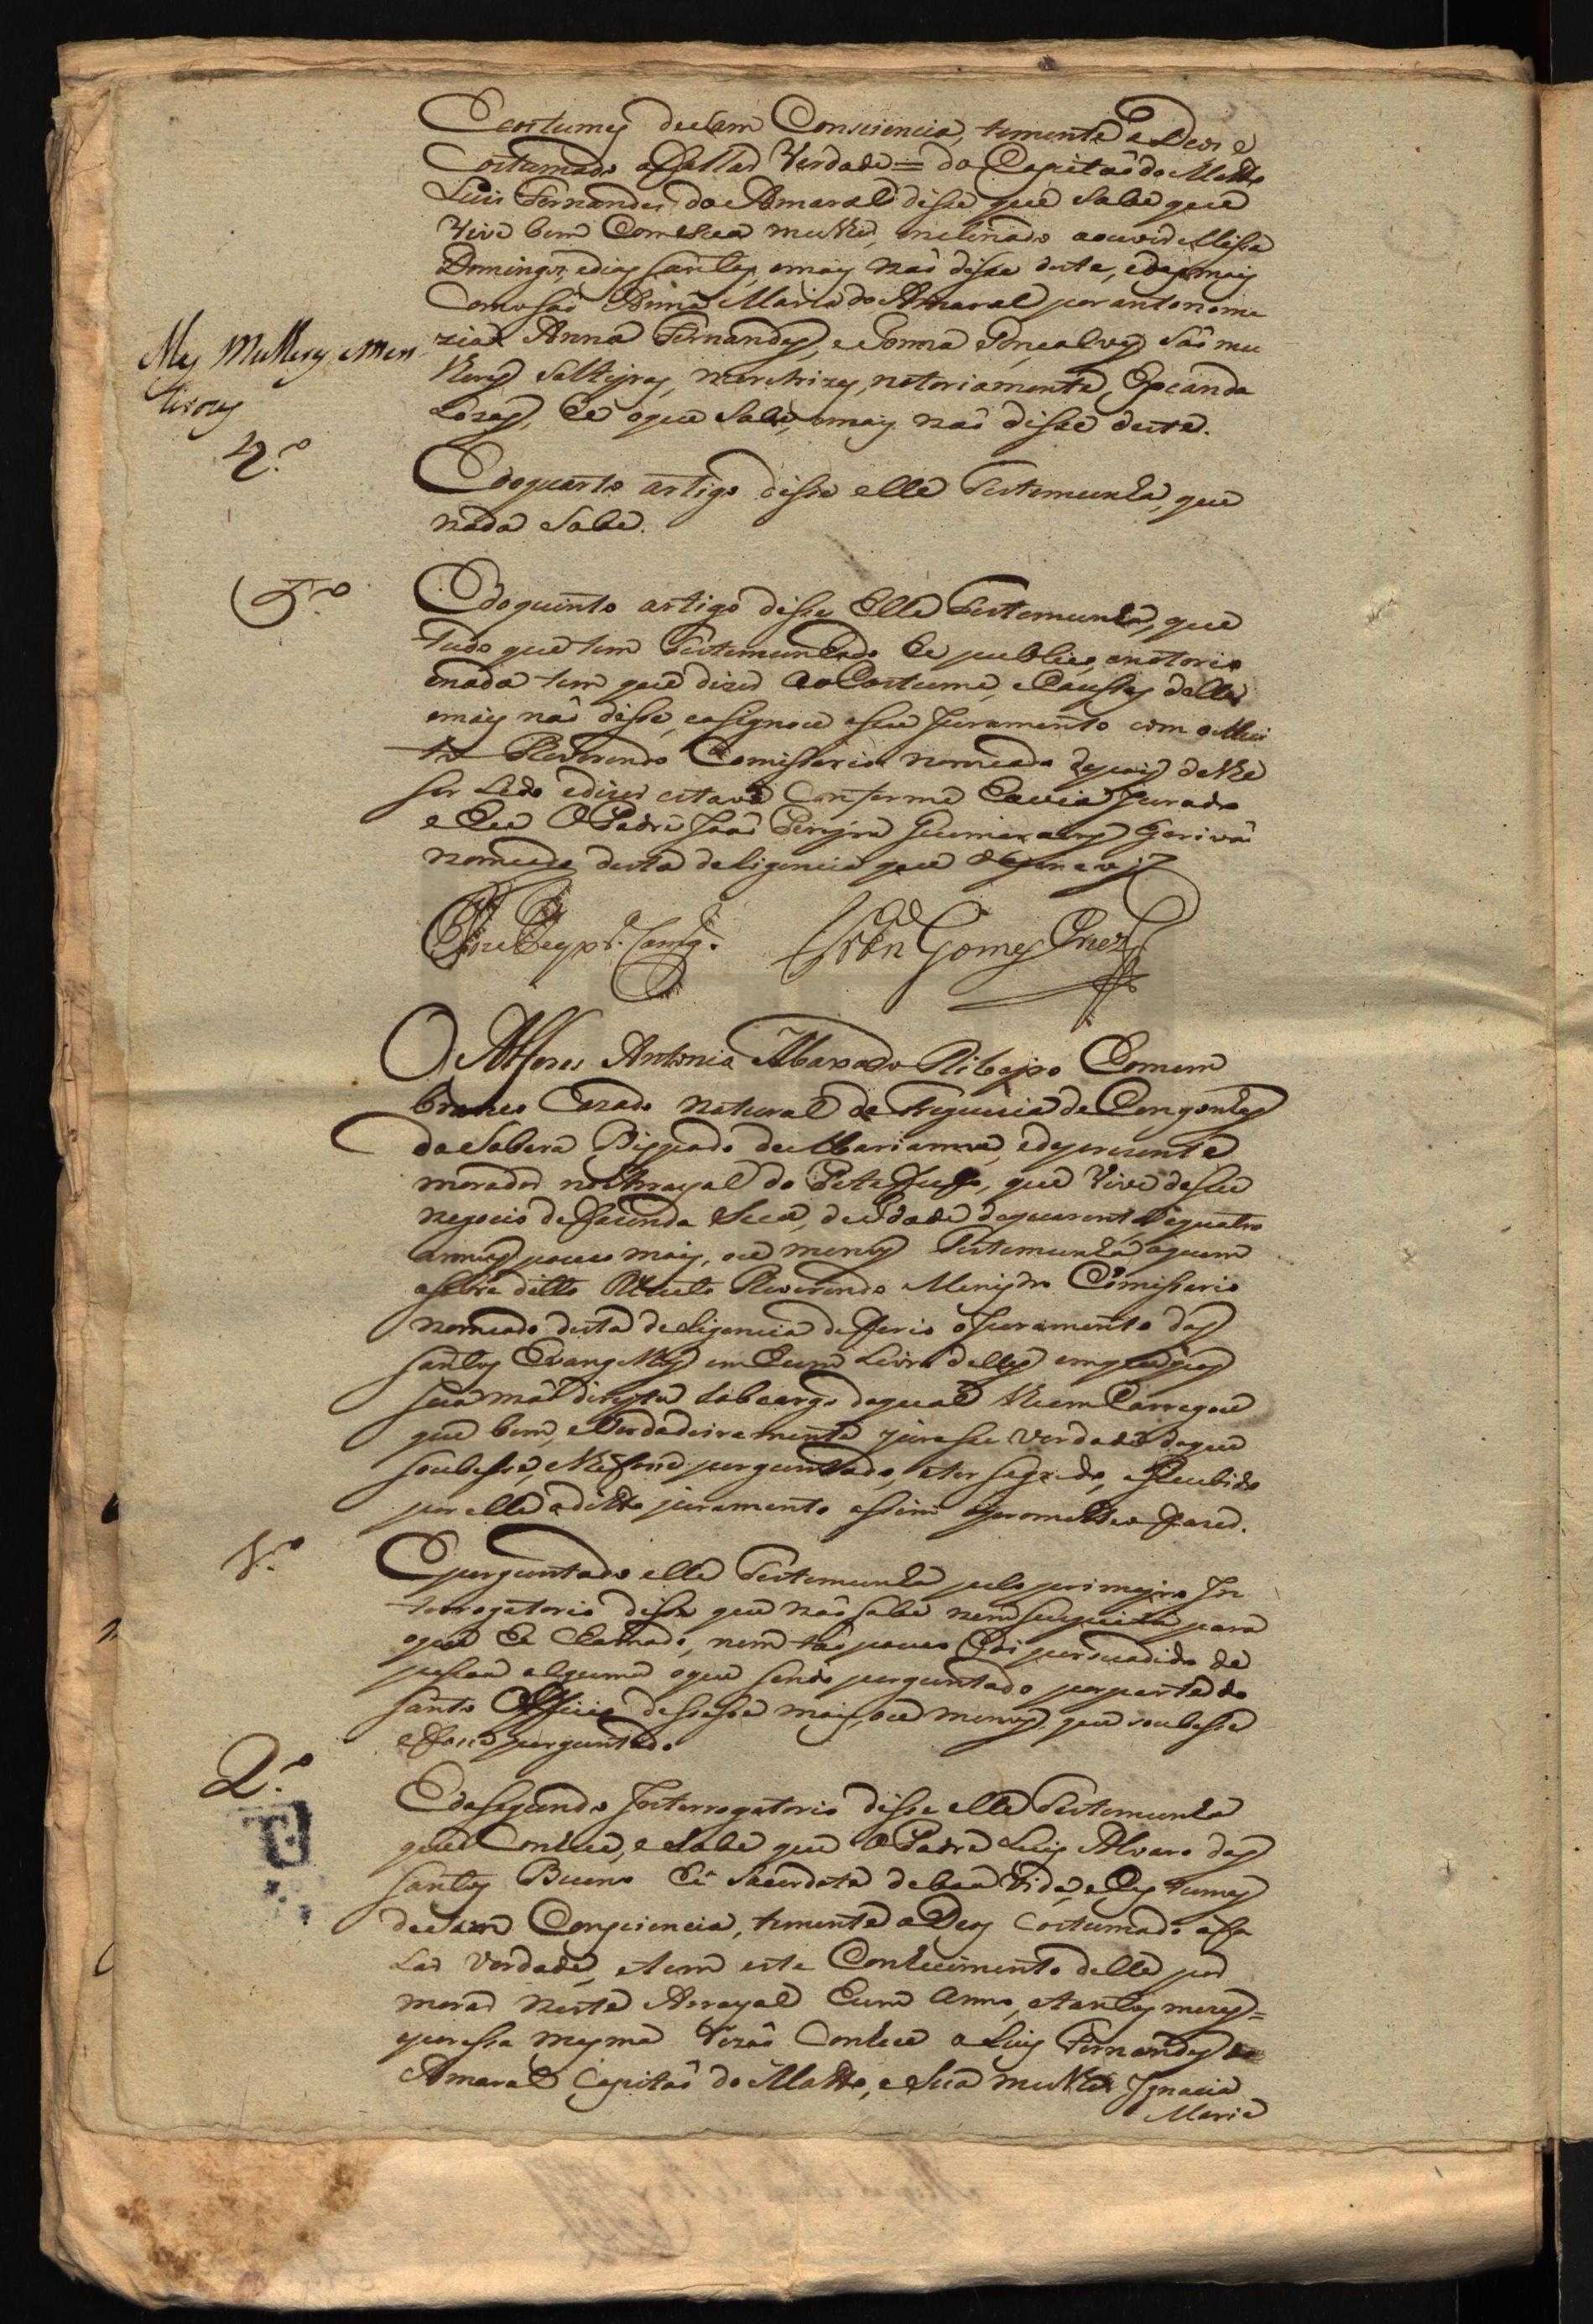 Costumes de sam Consciencia, temente a Deos e
Costumado a fallar Verdade = do Capitaõ do Matto
Luis Fernandes do Amaral disse que sabe que
Vive bem Com sua mulher, inclinado a ouvir Missa
Domingos, e dias santos, e mais naõ disse deste, e das mais
Como saõ Anna Maria do Amaral por antonoma
zia Anna Fernandes, e Joanna Gonçalves saõ mu
lheres solteyras, meretrizes, notoriamente, Escanda
lozas, he o que sabe, e mais naõ disse deste.
Más Mulheres e men
tirozas
4.º
E do quarto artigo disse elle Testemunha, que
nada sabe.
5.º
E do quinto artigo disse elle Testemunha, que
tudo que tem Testemunhado he publico, e notorio
e nada tem que dizer ao Costume, e Causas delle
e mais naõ disse, e asignou o seu Juramento com o Mui
to Reverendo Comissario nomeado depois de lhe
ser Lido e dizer estava Conforme havia Jurado
e Eu O Padre Joaõ Pereyra Guimaraens Escrivaõ
nomeado desta deligencia que o escrevy
Gomes
O Alferes Antonio Machado Ribeyro homem
branco Cazado natural da freguesia de Congonhas
do Sabará Bispado de Marianna, e de prezente
morador no Arrayal do que vive de seu
negocio de fazenda seca, de idade de quarenta e quatro
annos pouco mais, ou menos Testemunha a quem
o sobre ditto Muito Reverendo Menistro Comissario
nomeado desta deligencia deferio o Juramento dos
santos Evangelhos em hum Livro delles em que pos
sua maõ direyta sob cargo do qual lhe emCarregou
que bem, e verdadeiramente jurasse verdade do que
soubesse, e lhe fosse perguntado, e ter segredo, e Recebido
por elle o ditto juramento assim o prometteo fazer.
1.º
E perguntado elle Testemunha pelo primeyro In
terrogatorio disse que naõ sabe nem suspeita para
o que he Chamado, nem taõ pouco foi persuadido de
pessoa alguma o que sendo perguntado por parte do
santo Officio dissesse mais, ou menos que soubesse
e fosse perguntado.
2.º
E do segundo Interrogatorio disse elle Testemunha
que Conhece, e sabe que o Padre Luis Alvaro dos
santos Bueno he Sacerdote de boa vida, e Costumes
de sam Consciencia, temente a Deos Costumado a fa
lar verdade, e tem este Conhecimento delle por
morar neste Arrayal hum anno, e tantos mezes =
e por essa mesma rezaõ Conhece a Luis Fernandes do
Amaral Capitaõ do Matto, e sua mulher Ignacia
Maria